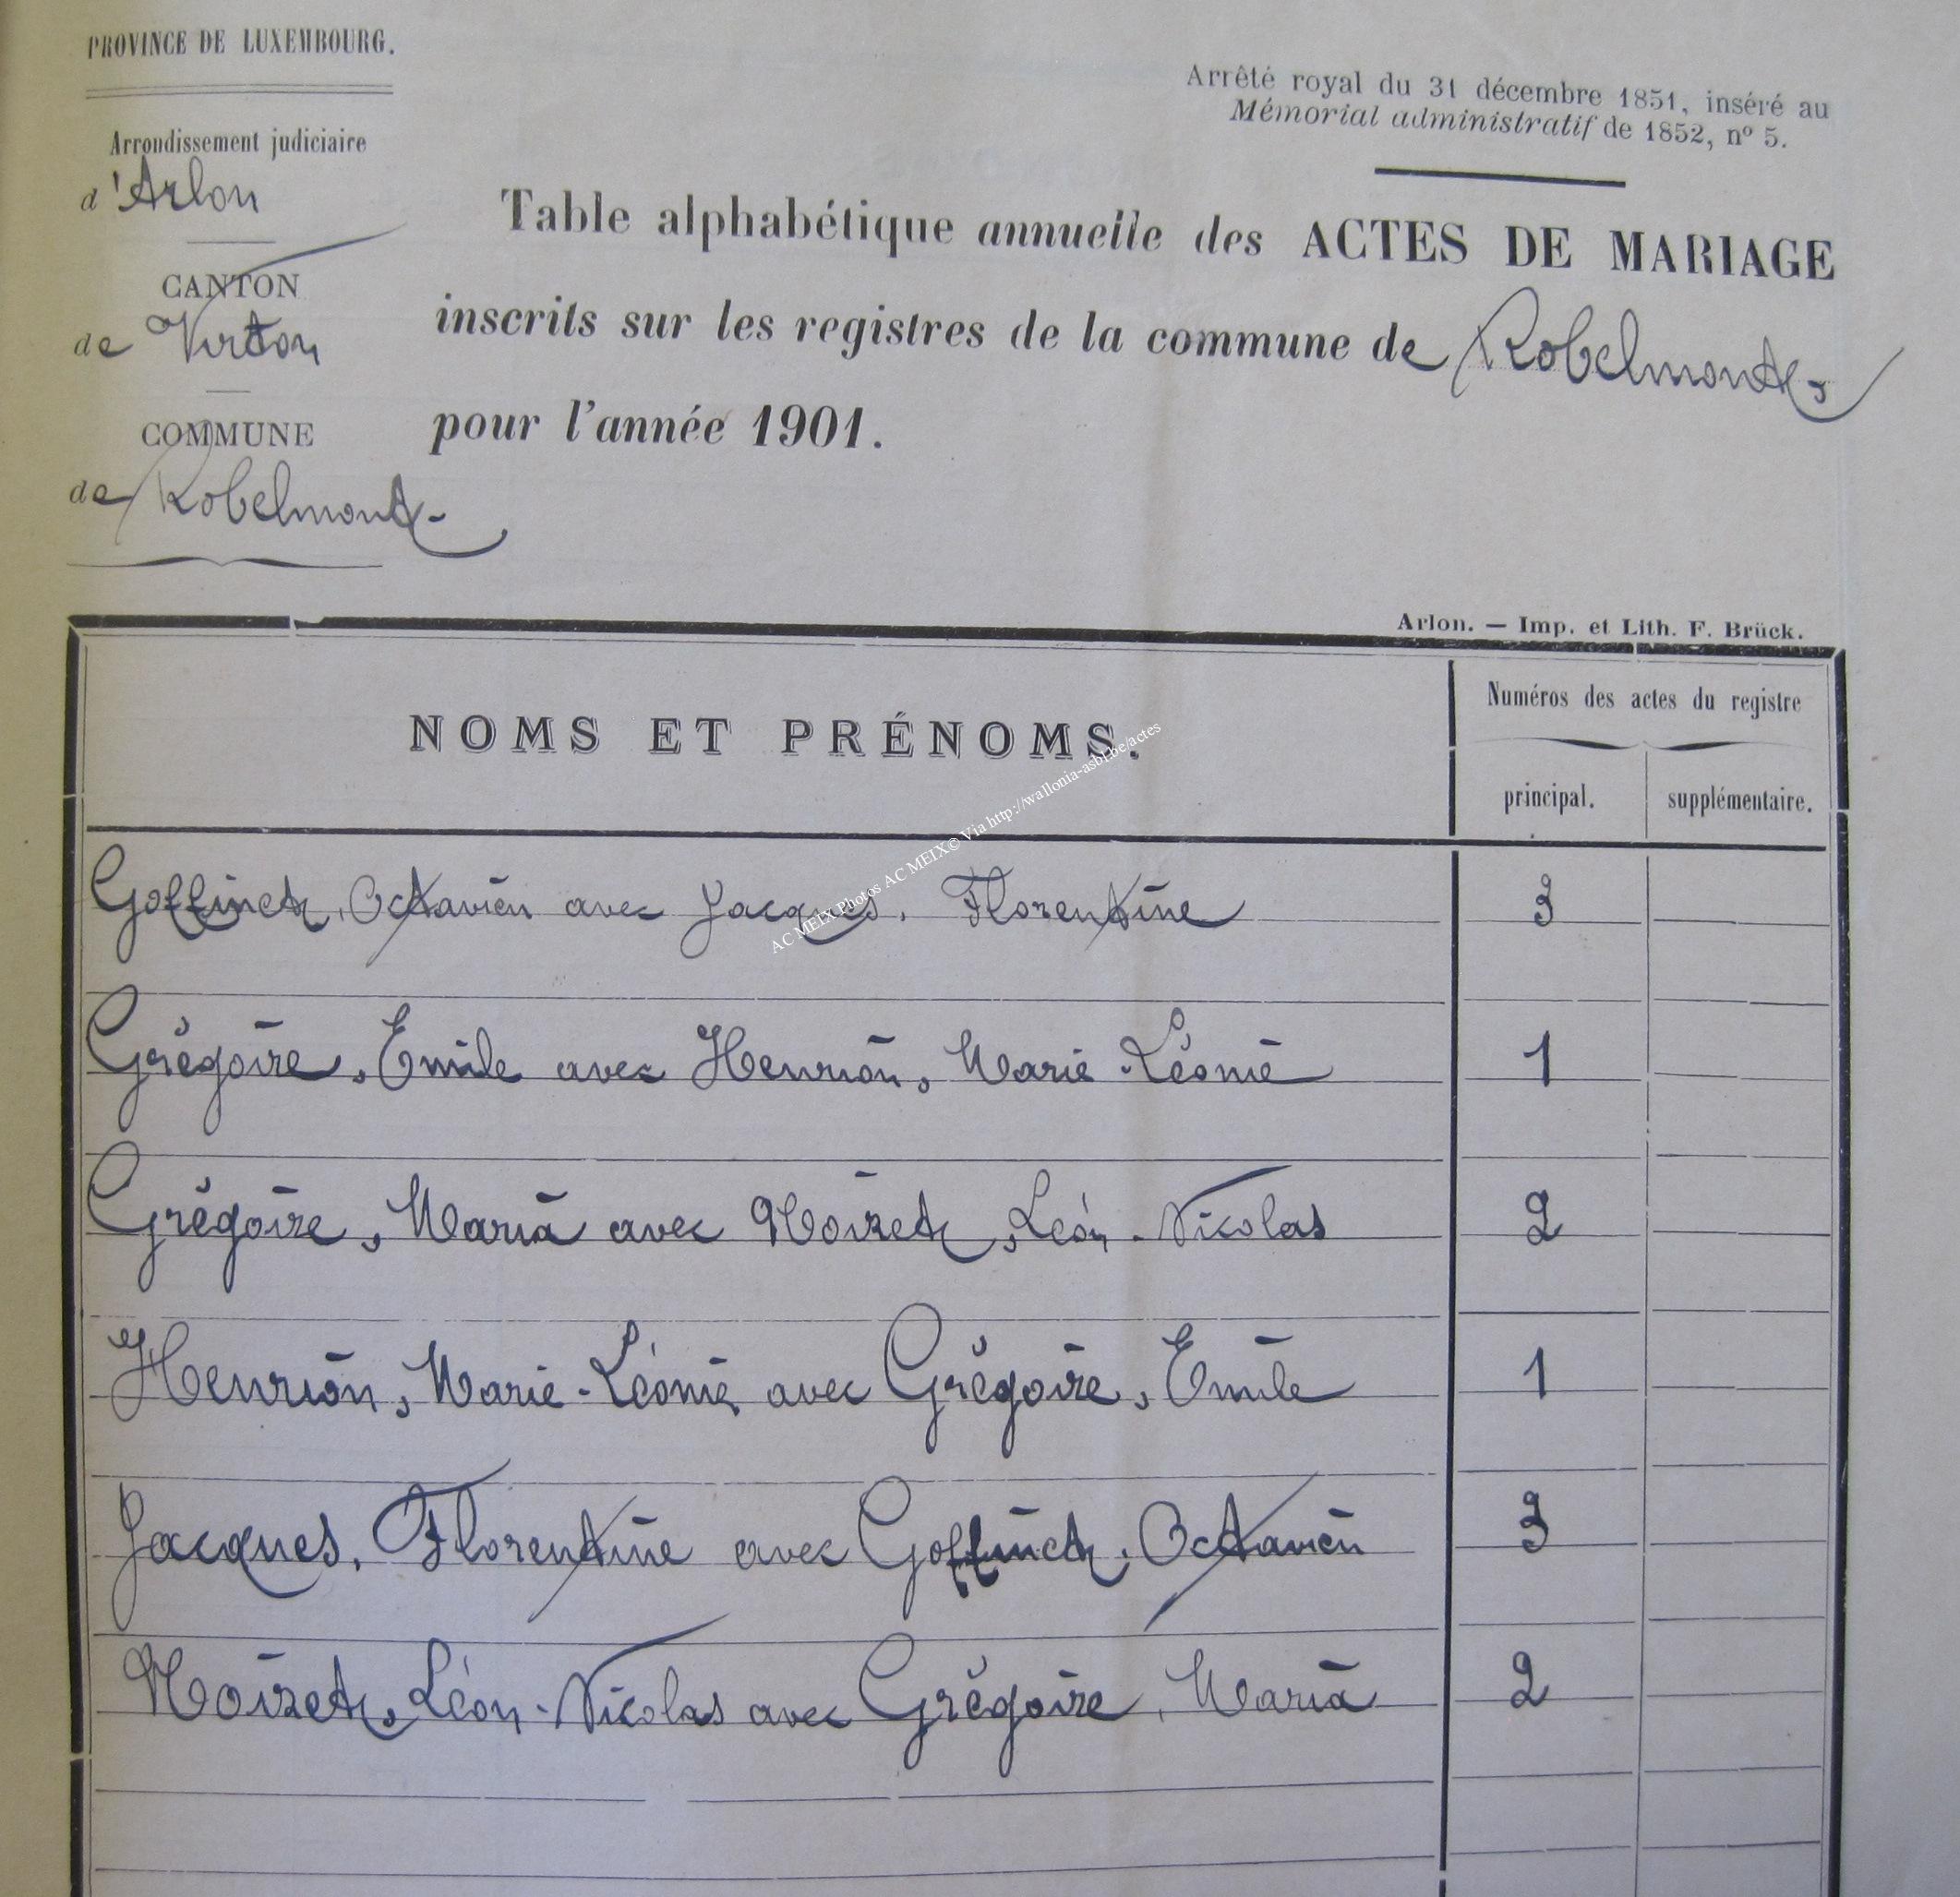 PROVINCE DE LUXEMBOURG.
Arrondissement judiciaire
d'Arlon
CANTON
de Virton
COMMUNE
de Robelmont
Arrêté royal du 31 décembre 1851, inséré au
Mémorial administratif de 1852, nº 5.
Table alphabétique annuelle des ACTES DE MARIAGE
inscrits sur les registres de la commune de Robelmont
pour l'année 1901.
Arlon. — Imp. et Lith. F. Brück.
NOMS ET PRÉNOMS.
Numéros des actes du registre
principal. supplémentaire.
Goffinet, Octavien avec Jacques, Florentine 3
Grégoire, Emile avec Henrion, Marie-Léonie 1
Grégoire, Maria avec Noiret, Léon-Nicolas 2
Henrion, Marie-Léonie avec Grégoire, Emile 1
Jacques, Florentine avec Goffinet, Octavien 3
Noiret, Léon-Nicolas avec Grégoire, Maria 2
AC MEIX Photos AC MEIX© Via http://wallonia-asbl.be/actes